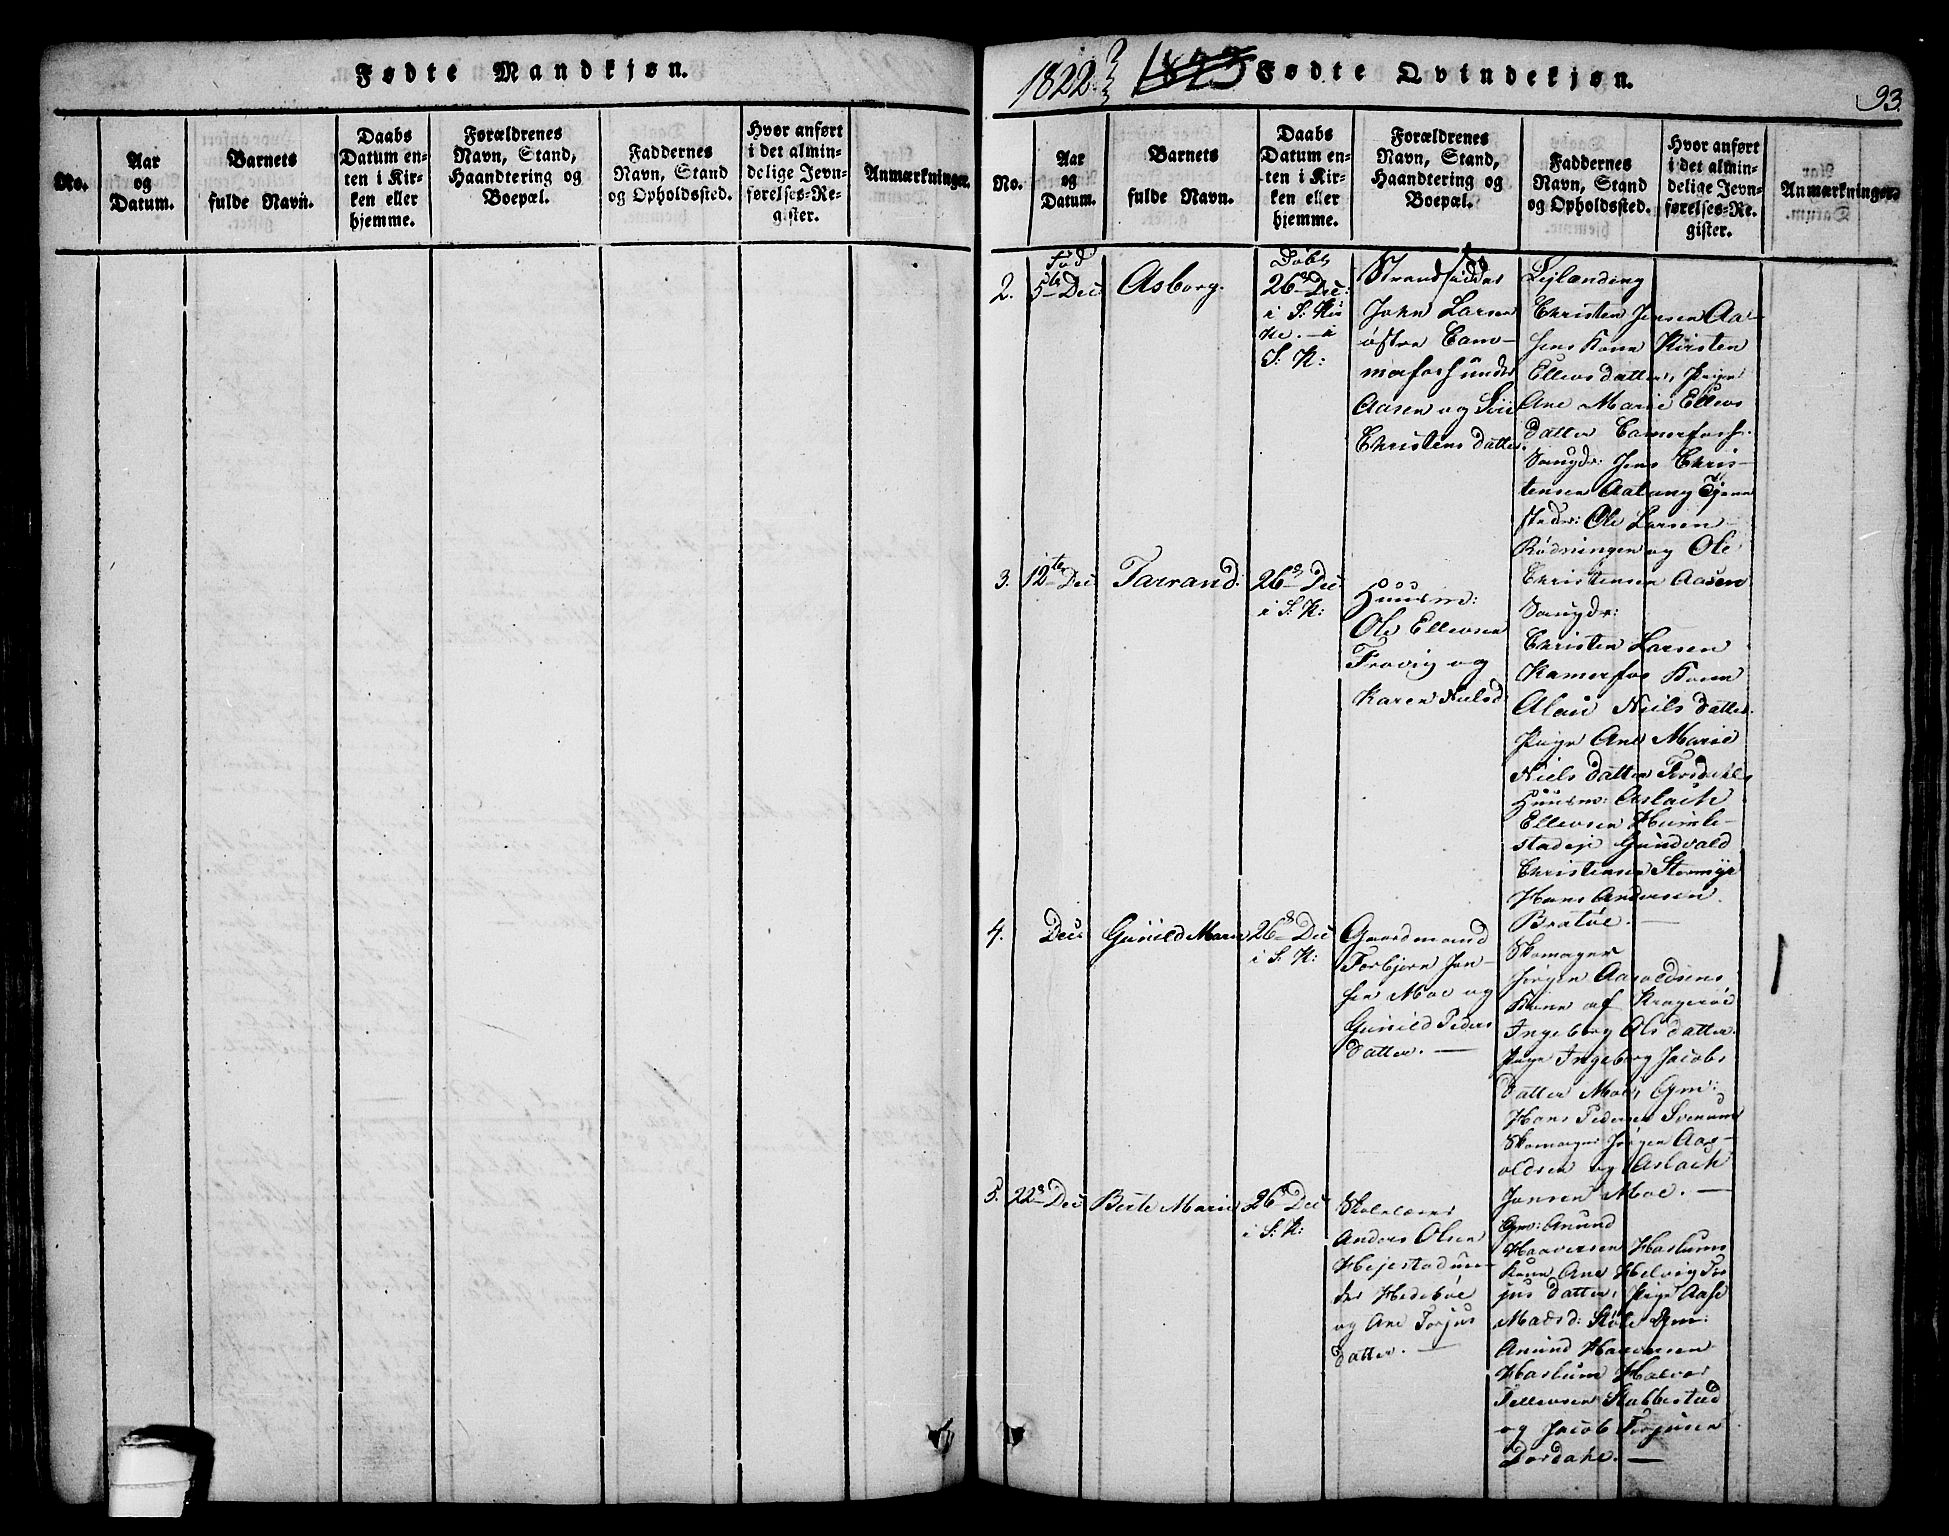 Fødte Mandkjøn.
No.
Aar
og
Datum.
Barnets
fulde Navn.
Daabs
Datum en-
ten i Kir-
ken eller
hjemme.
Forældrenes
Navn, Stand,
Haandtering og
Boepæl.
Faddernes
Navn, Stand
og Opholdssted.
Hvor anført
i det almin-
delige Jevn-
førelses-Re-
gister.
Anmærkninger.
1822 1823 Fødte Qvindekjøn.
93
No.
Aar
og
Datum.
Barnets
fulde Navn.
Daabs
Datum en-
ten i Kir-
ken eller
hjemme.
Forældrenes
Navn, Stand,
Haandtering og
Boepæl.
Faddernes
Navn, Stand
og Opholdssted.
Hvor anført
i det almin-
delige Jevn-
førelses-Re-
gister.
Anmærkninger.
2.
Fød
5te Dec
Asborg.
Døbt
26 Dec:
i S: Kir
ke. — i
S: K:
Strandsidder
John Larsen
østre Cam-
merfors under
Aasen og Siri
Christensdatter.
Lejlænding
Christen Jensen Aa-
sens Kone Kirsten
Ellevsdatter, Pige
Ane Marie Ellevs
datter Camerfors.
Sougdr: Jens Chris-
tensen
stedr: Ole Larsen
Rødningen og Ole
Christensen Aasen
3.
12te Dec
Tarrand.
26 Dec.
i S: K:
Huusm:
Ole Ellevsen
Frovig og
Karen Nielsd:
Sougdr:
Christen Larsen
Kamerfos Kone
Nielsdatter.
Pige Ane Marie
Nielsdatter Fordahl,
Huusm: Aslach
Ellevsen Humle-
stadeje Gundvald
Christensen Stormyr
Hans Andersen
Bratøe. —
4.
Dec.
Gunild Marie
26 Dec
i S: K:
Gaardmand
Torbjørn Jon-
sen Moe og
Gunild Peders
datter. —
Skomager
Jørgen Aaroldsens
Kone af Kragerøe
Ingeborg Olsdatter.
Pige Ingeborg Jacobs
datter Moe, Gm:
Hans Pedersen Svenum
Skomager Jørgen Aar-
oldsen og Aslach
Jonsen Moe. —
5.
22 Dec
Berte Marie
26 Dec
i S: K:
Skolelærer
Anders Olsen
Hejestad un-
der Hedebøe
og Ane Torjus
datter. —
Gm: Anund
Haavorsen Haslums
Kone Ane Helvig Tor
jus datter, Pige Aase
Madsd: Støle Gm:
Anund Haavorsen
Haslum Halvor
Tellevsen Stabbestad
og Jacob Torjusen
Dordahl. —